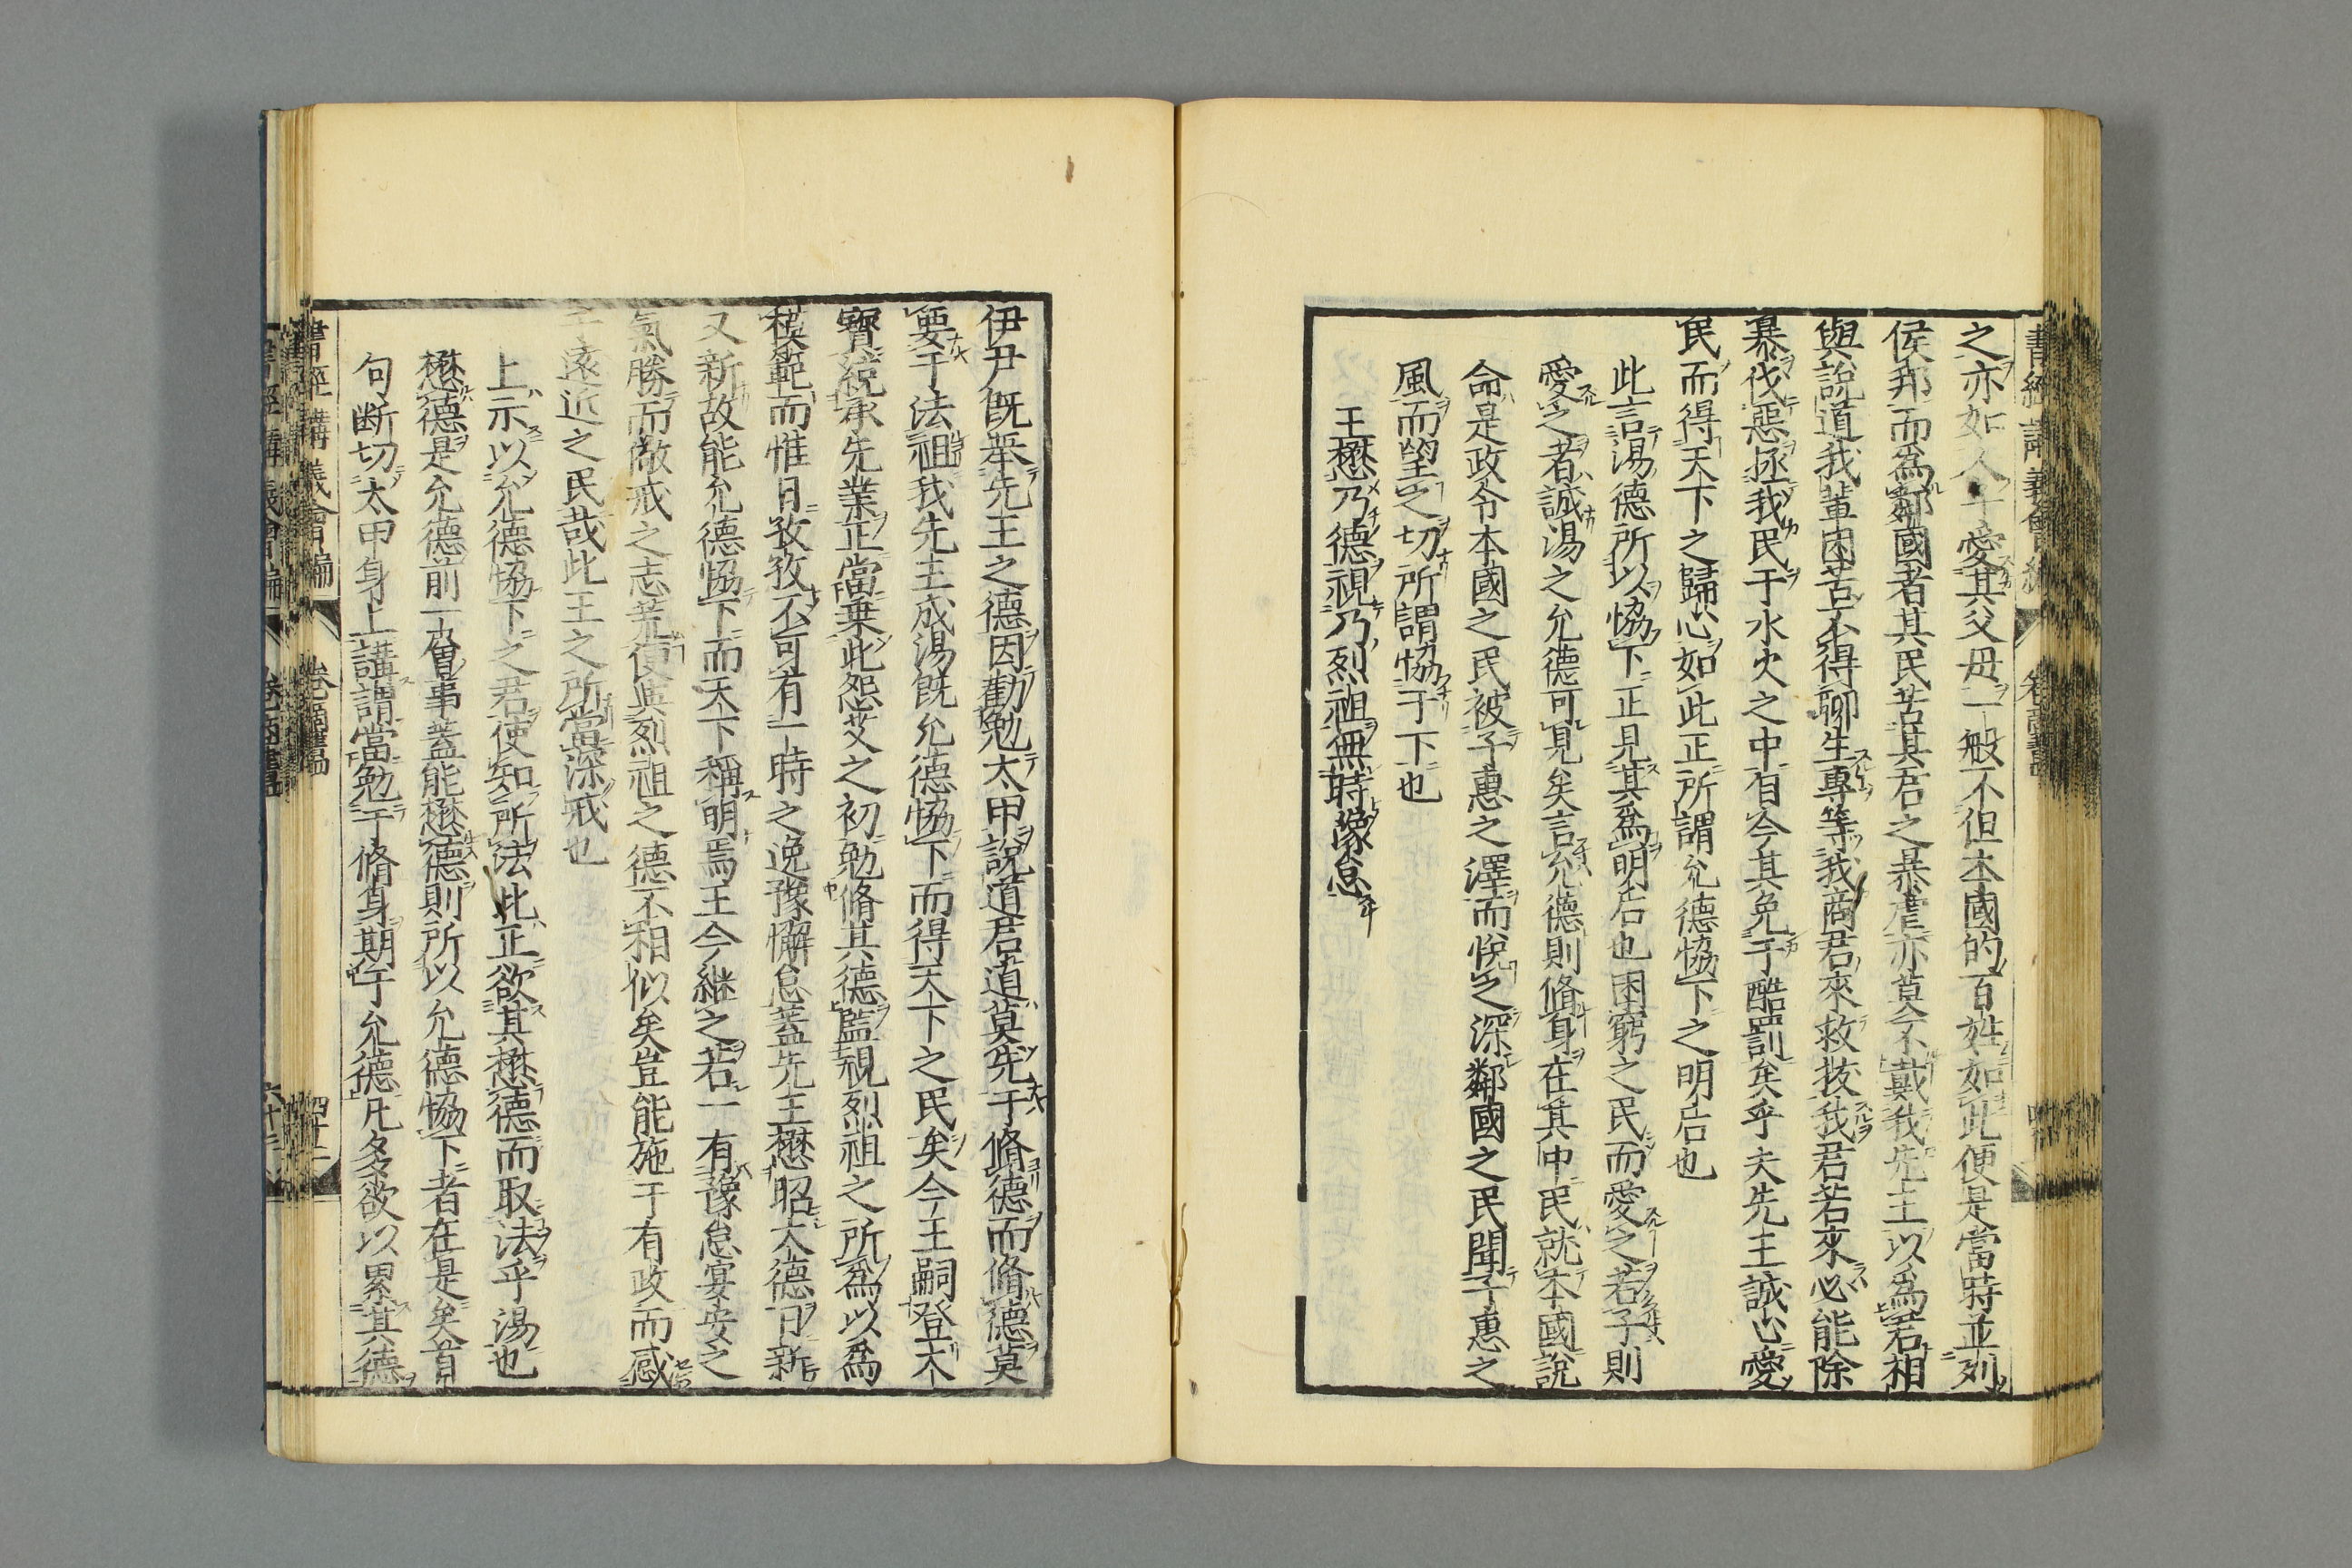 之亦如人子愛其父母一般不但本國的百姓如此便是當時並列
侯邦而爲鄰國者其民苦其君之暴虐亦莫不戴我先王以爲君相
與說道我輩困苦不得聊生專等我商君來救拔我君若來必能除
暴伐惡拯我民于水火之中自今其免于酷罰矣乎夫先王誠心愛
民而得天下之歸心如此正所謂允德恊下之明后也
此言湯德所以恊下正見其爲明后也困窮之民而愛之若子則
愛之者誠湯之允德可見矣言允德則脩身在其中民就本國說
命是政令本國之民被子惠之澤而悅之深鄰國之民聞子惠之
風而望之切所謂恊于下也
王懋乃德視乃烈祖無時豫怠
伊尹旣舉先王之德因勸勉太甲說道君道莫先于脩德而脩德莫
要于法祖我先王成湯旣允德恊下而得天下之民矣今王嗣登大
寶統承先業正當乘此怨艾之初勉脩其德監視烈祖之所爲以爲
模範而惟日孜孜不可有一時之逸豫懈怠蓋先王懋昭大德日新
又新故能允德恊下而天下稱明焉王今繼之若一有豫怠宴安之
氣勝而敵戒之志荒便與烈祖之德不相似矣豈能施于有政而感
遠近之民哉此王之所當深戒也
上示以允德恊下之君使知所法此正欲其懋德而取法乎湯也
懋德是允德前一層事蓋能懋德則所以允德恊下者在是矣首
句斷切太甲身上講謂當勉于脩身期于允德凡多欲以累其德
書經講義會編
卷商書